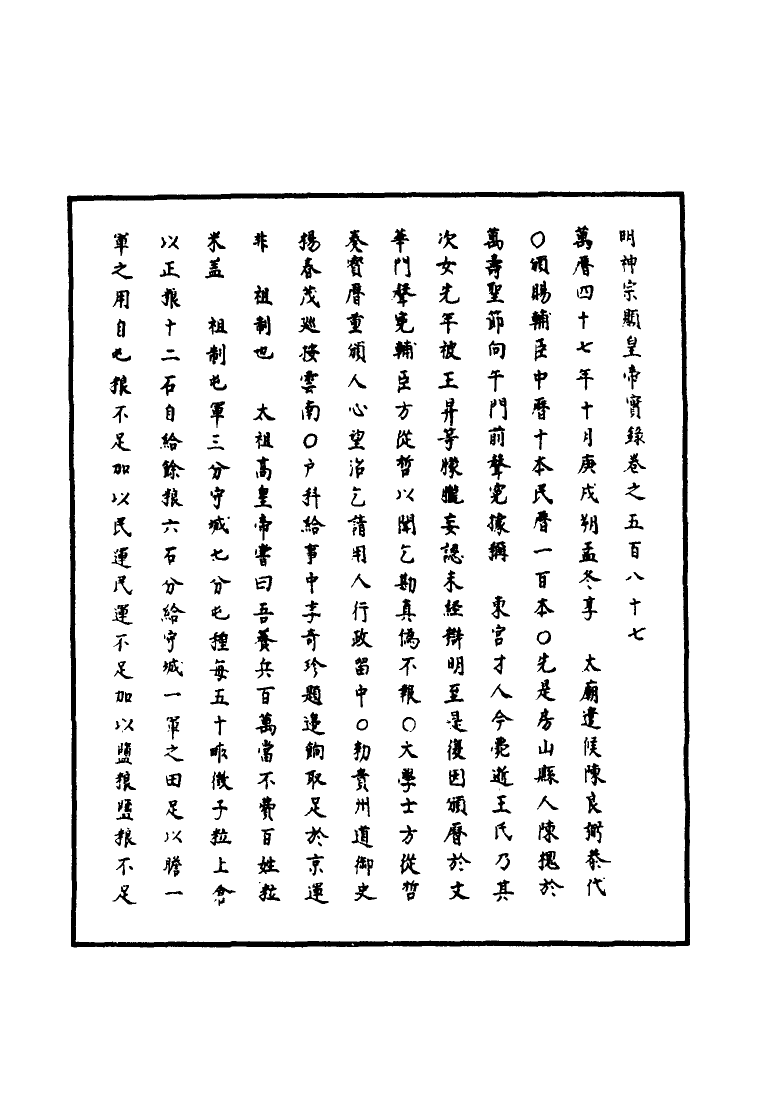 明神宗顯皇帝實錄卷之五百八十七
萬曆四十七年十月庚戌朔孟冬享　太廟遣侯陳良弼恭代
○頒賜輔臣中曆十本民曆一百本○先是房山縣人陳槐於
萬壽聖節向午門前聲冤據稱　東宮才人今薨逝王氏乃其
次女先年被王昇等朦朧妄認未經辯明至是復因頒曆於文
華門聲冤輔臣方從哲以聞乞勘真偽不報○大學士方從哲
奏寶曆重頒人心望治乞請用人行政留中○勑貴州道御史
楊春茂巡按雲南○户科給事中李奇珍題邊餉取足於京運
非　祖制也　太祖高皇帝嘗曰吾養兵百萬當不費百姓粒
米盖　祖制屯軍三分守城七分屯種每五十畝徵子粒上倉
以正粮十二石自給餘粮六石分給守城一軍之田足以贍一
軍之用自屯粮不足加以民運民運不足加以鹽粮鹽粮不足